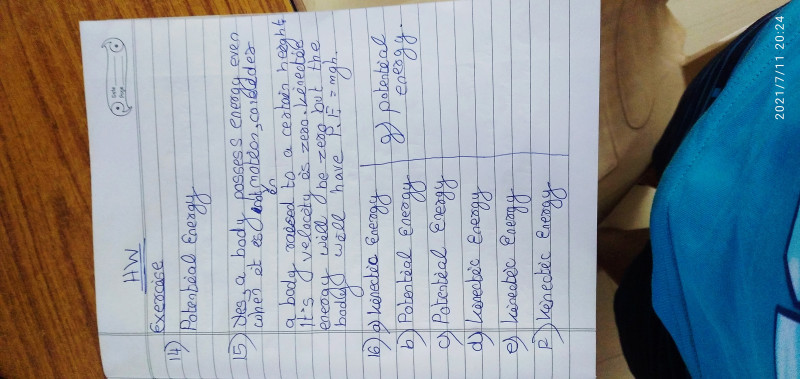 Date
Page
HW
Exercise
14) Potential Energy
15) Yes, a body possess energy even
when it is not in motion, consider
a body raised to a certain height
It's velocity is zero. kinectic
energy will be zero but the
body will have P.E = mgh.
16) a) kinectic Energy
b) Potential Energy
c) Potential Energy
d) kinectic Energy
e) kinectic Energy
F) kinectic Energy.
g) potential
energy.
2021/7/11 20:24